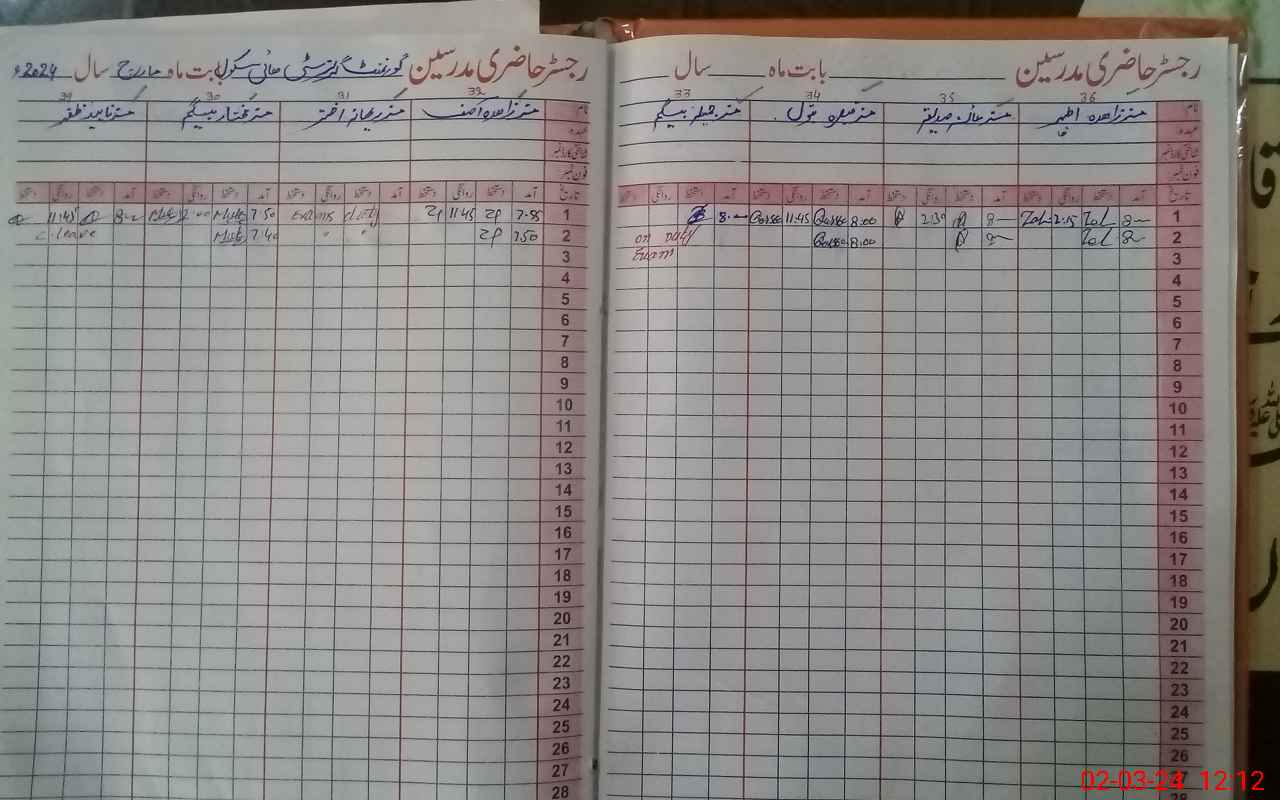 رجسٹر حاضری مدرسین گورنمنٹ گرلز سٹی ہائی سکول بابت ماہ مارچ سال 2024ء
32 31 30 29
مسز زاہدہ آصف مسز ریحانہ اختر مسز مختار بیگم مسز ناہید ظفر
نام
عہدہ
شناختی کارڈ نمبر
فون نمبر
تاریخ آمد دستخط روانگی دستخط آمد دستخط روانگی دستخط آمد دستخط روانگی دستخط آمد دستخط روانگی دستخط
1 7.50 11:45 Exams duty 11:45
2 7.50 " " 7.40 C.leave
3
4
5
6
7
8
9
10
11
12
13
14
15
16
17
18
19
20
21
22
23
24
25
26
27
28
رجسٹر حاضری مدرسین بابت ماہ سال
36 35 34 33
مسز زاہدہ اظہر مسز عائشہ صدیقہ مسز بتول مسز جمیلہ بیگم
نام
عہدہ
شناختی کارڈ نمبر
فون نمبر
تاریخ آمد دستخط روانگی دستخط آمد دستخط روانگی دستخط آمد دستخط روانگی دستخط آمد دستخط روانگی دستخط
1 2.15 2.30 8.00 11:45
2 8.00 on duty
3 Exam
4
5
6
7
8
9
10
11
12
13
14
15
16
17
18
19
20
21
22
23
24
25
26
27
28
02-03-24 12:12